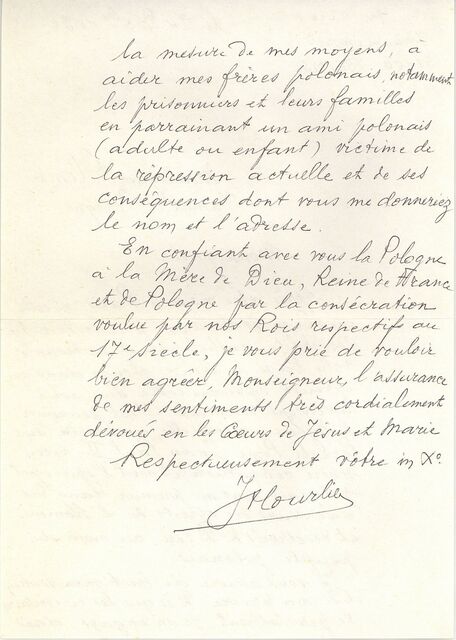 la mesure de mes moyens, à
aider mes frères polonais, notamment
les prisonniers et leurs familles
en parrainant un ami polonais
(adulte ou enfant) victime de
la répression actuelle et de ses
conséquences dont vous me donneriez
le nom et l'adresse.
En confiant avec vous la Pologne
à la Mère de Dieu, Reine de France
et de Pologne par la consécration
voulue par nos Rois respectifs au
17e siècle, je vous prie de vouloir
bien agréer, Monseigneur, l'assurance
de mes sentiments très cordialement
dévoués en les Cœurs de Jésus et Marie
Respectueusement vôtre in Xo.